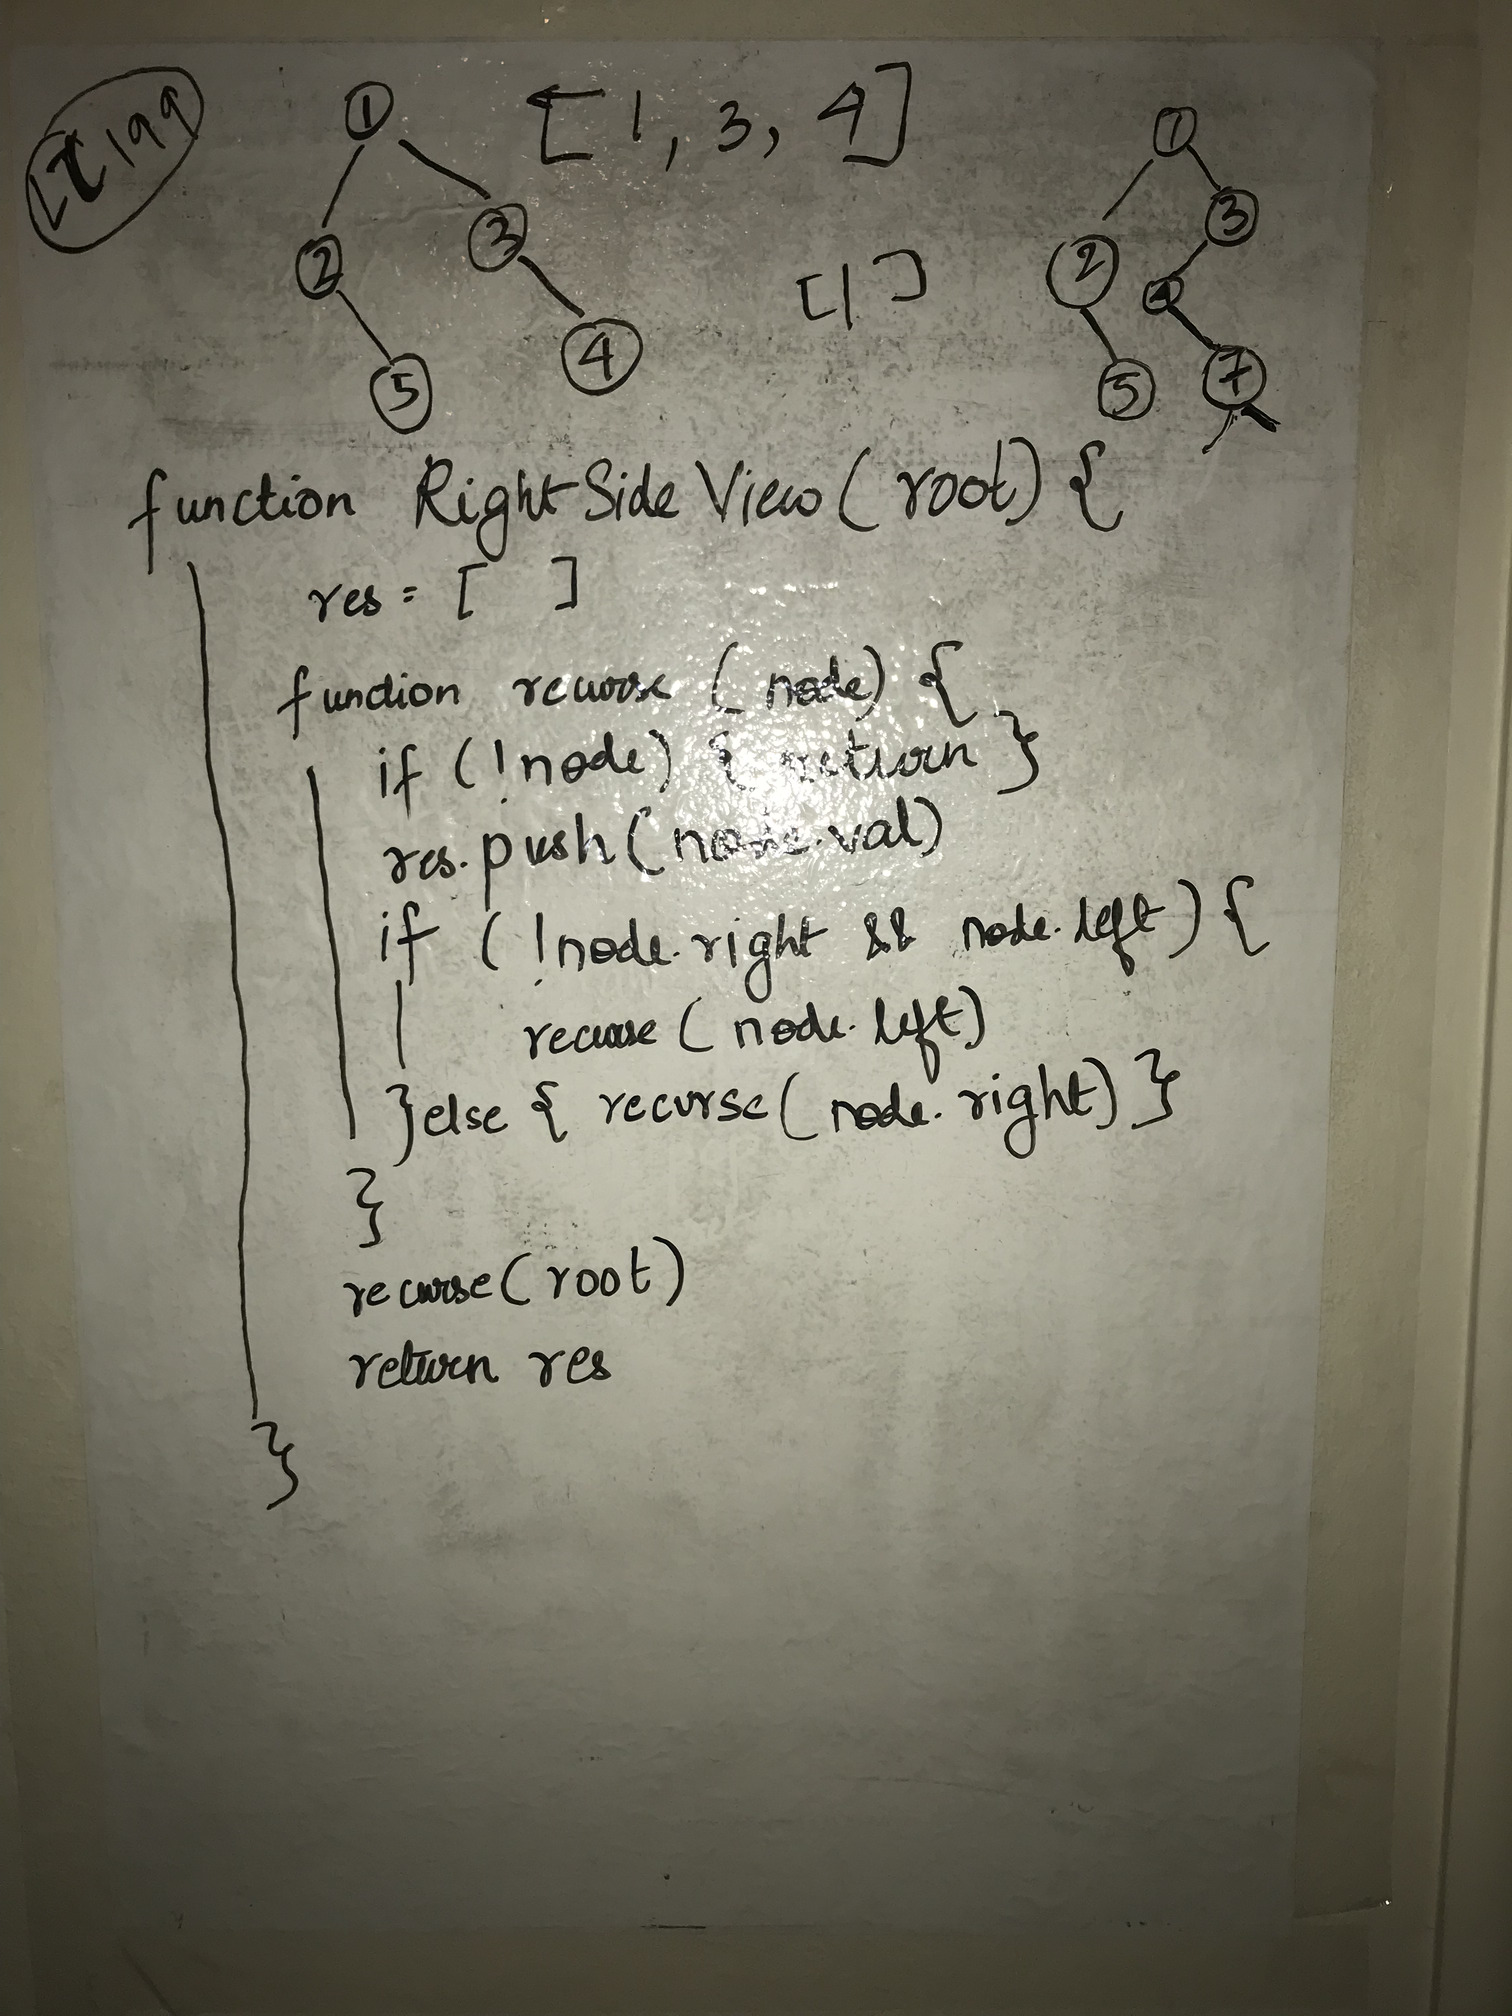 LC 199
[1, 3, 4]
1
2
3
5
4
[1]
1
2
3
4
5
7
function RightSideView(root) {
res = [ ]
function recurse (node) {
if (!node) { return }
res.push(node.val)
if (!node.right && node.left) {
recurse (node.left)
}else { recurse(node.right) }
}
recurse(root)
return res
}